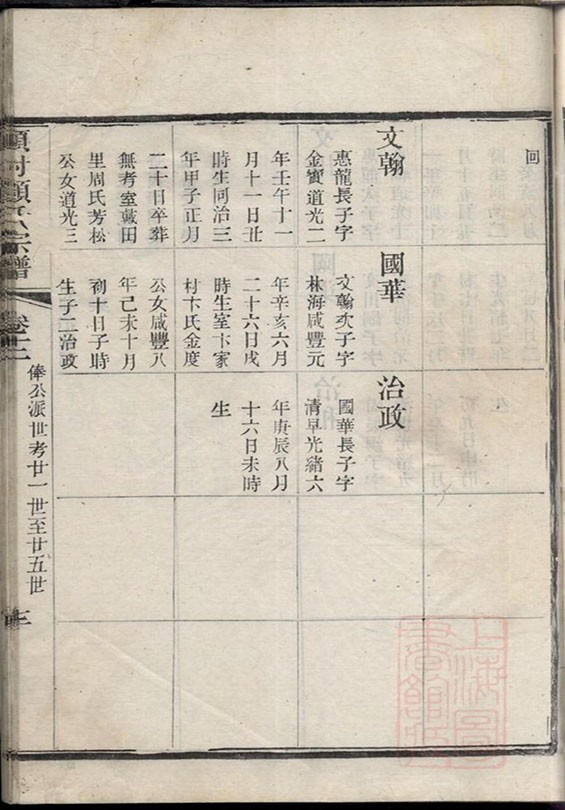 回
文翰
惠龍長子字
金寶道光二
年壬午十一
月十一日丑
時生同治三
年甲子正月
二十日卒葬
無考室戴田
里周氏芳松
公女道光三
國華
文翰次子字
林海咸豐元
年辛亥六月
二十六日戌
時生室卞家
村卞氏金度
公女咸豐八
年己未十月
初十日子時
生子二治政
治政
國華長子字
清早光緒六
年庚辰八月
十六日未時
生
宗譜
俸公派世考廿一世至廿五世
上海圖
書館藏